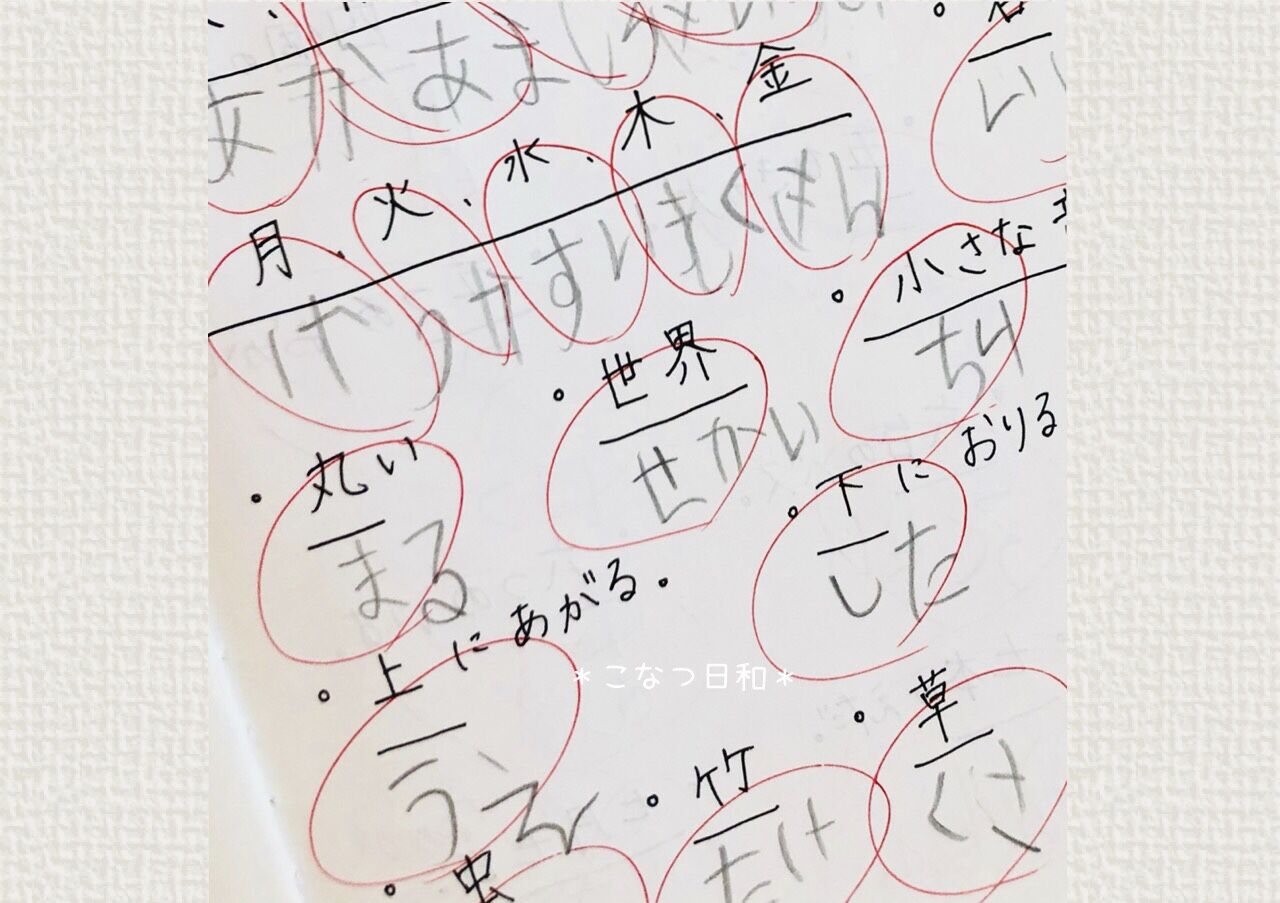 あか あまし
金
月、火、水、木、金
げつ か すい もく きん
小さな
ちい
・世界
せかい
・丸い
まる
・下に おりる
した
・上に あがる。
うえ
＊こなつ日和＊
・草
くさ
・竹
たけ
・虫